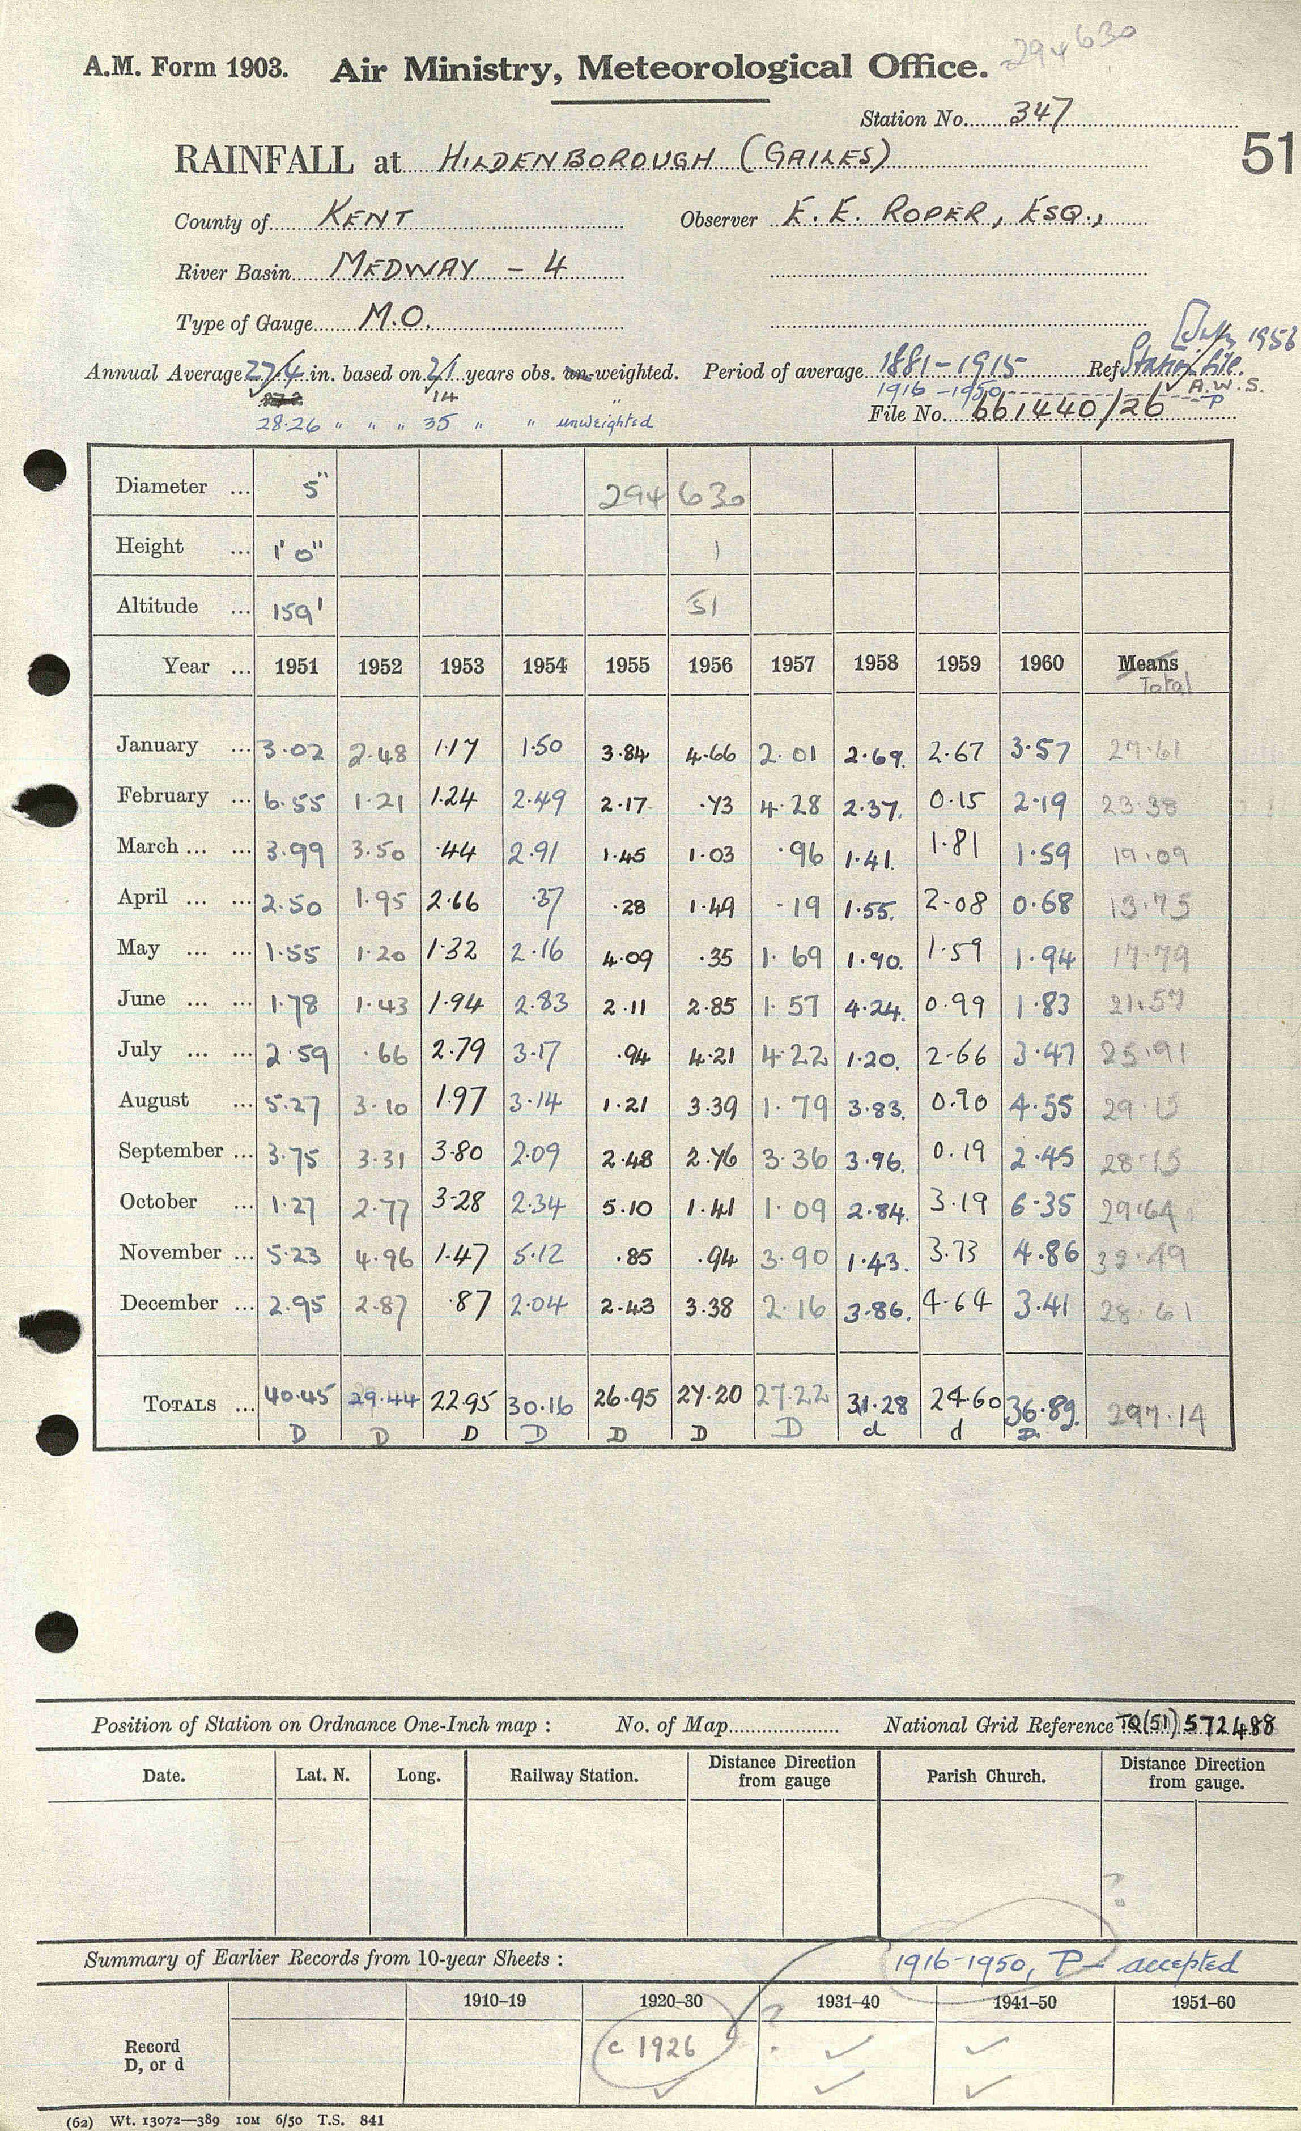 294630
A.M. Form 1903. Air Ministry, Meteorological Office.
Station No. 347
51
RAINFALL at HILDENBOROUGH (GAILES)
County of KENT Observer E. E. ROPER, ESQ.,
River Basin MEDWAY - 4
Type of Gauge M.O.
1956
Annual Average 27.4 in. based on 21 years obs. un-weighted. Period of average 1881-1915 Ref Station File.
14 1916-1950 A.W.S.
28.26 " " " 35 " " unweighted File No. 661440/26 P
Diameter ... 5" 294 630
Height ... 1' 0" 1
Altitude ... 159' 51
Year ... 1951 1952 1953 1954 1955 1956 1957 1958 1959 1960 Means
Total
January ... 3.02 2.48 1.17 1.50 3.84 4.66 2.01 2.69. 2.67 3.57 27.61
February ... 6.55 1.21 1.24 2.49 2.17 .73 4.28 2.37. 0.15 2.19 23.38
March ... ... 3.99 3.50 .44 2.91 1.45 1.03 .96 1.41. 1.81 1.59 19.09
April ... ... 2.50 1.95 2.66 .37 .28 1.49 .19 1.55. 2.08 0.68 13.75
May ... ... 1.55 1.20 1.32 2.16 4.09 .35 1.69 1.90. 1.59 1.94 17.79
June ... ... 1.78 1.43 1.94 2.83 2.11 2.85 1.57 4.24. 0.99 1.83 21.57
July ... ... 2.59 .66 2.79 3.17 .94 4.21 4.22 1.20. 2.66 3.47 25.91
August ... 5.27 3.10 1.97 3.14 1.21 3.39 1.79 3.83. 0.90 4.55 29.15
September ... 3.75 3.31 3.80 2.09 2.48 2.76 3.36 3.96. 0.19 2.45 28.15
October ... 1.27 2.77 3.28 2.34 5.10 1.41 1.09 2.84. 3.19 6.35 29.64
November ... 5.23 4.96 1.47 5.12 .85 .94 3.90 1.43. 3.73 4.86 32.49
December ... 2.95 2.87 .87 2.04 2.43 3.38 2.16 3.86. 4.64 3.41 28.61
TOTALS ... 40.45 29.44 22.95 30.16 26.95 27.20 27.22 31.28 24.60 36.89. 297.14
D D D D D D D d d D
Position of Station on Ordnance One-Inch map : No. of Map National Grid Reference TQ(51) 572488
Date. Lat. N. Long. Railway Station. Distance from gauge Direction Parish Church. Distance from gauge. Direction
?
Summary of Earlier Records from 10-year Sheets : 1916-1950, P - accepted
1910–19 1920–30 1931–40 1941–50 1951–60
Record c 1926 ? ✓ ✓
D, or d ✓ ✓ ✓
(62) Wt. 13072—389 10M 6/50 T.S. 841